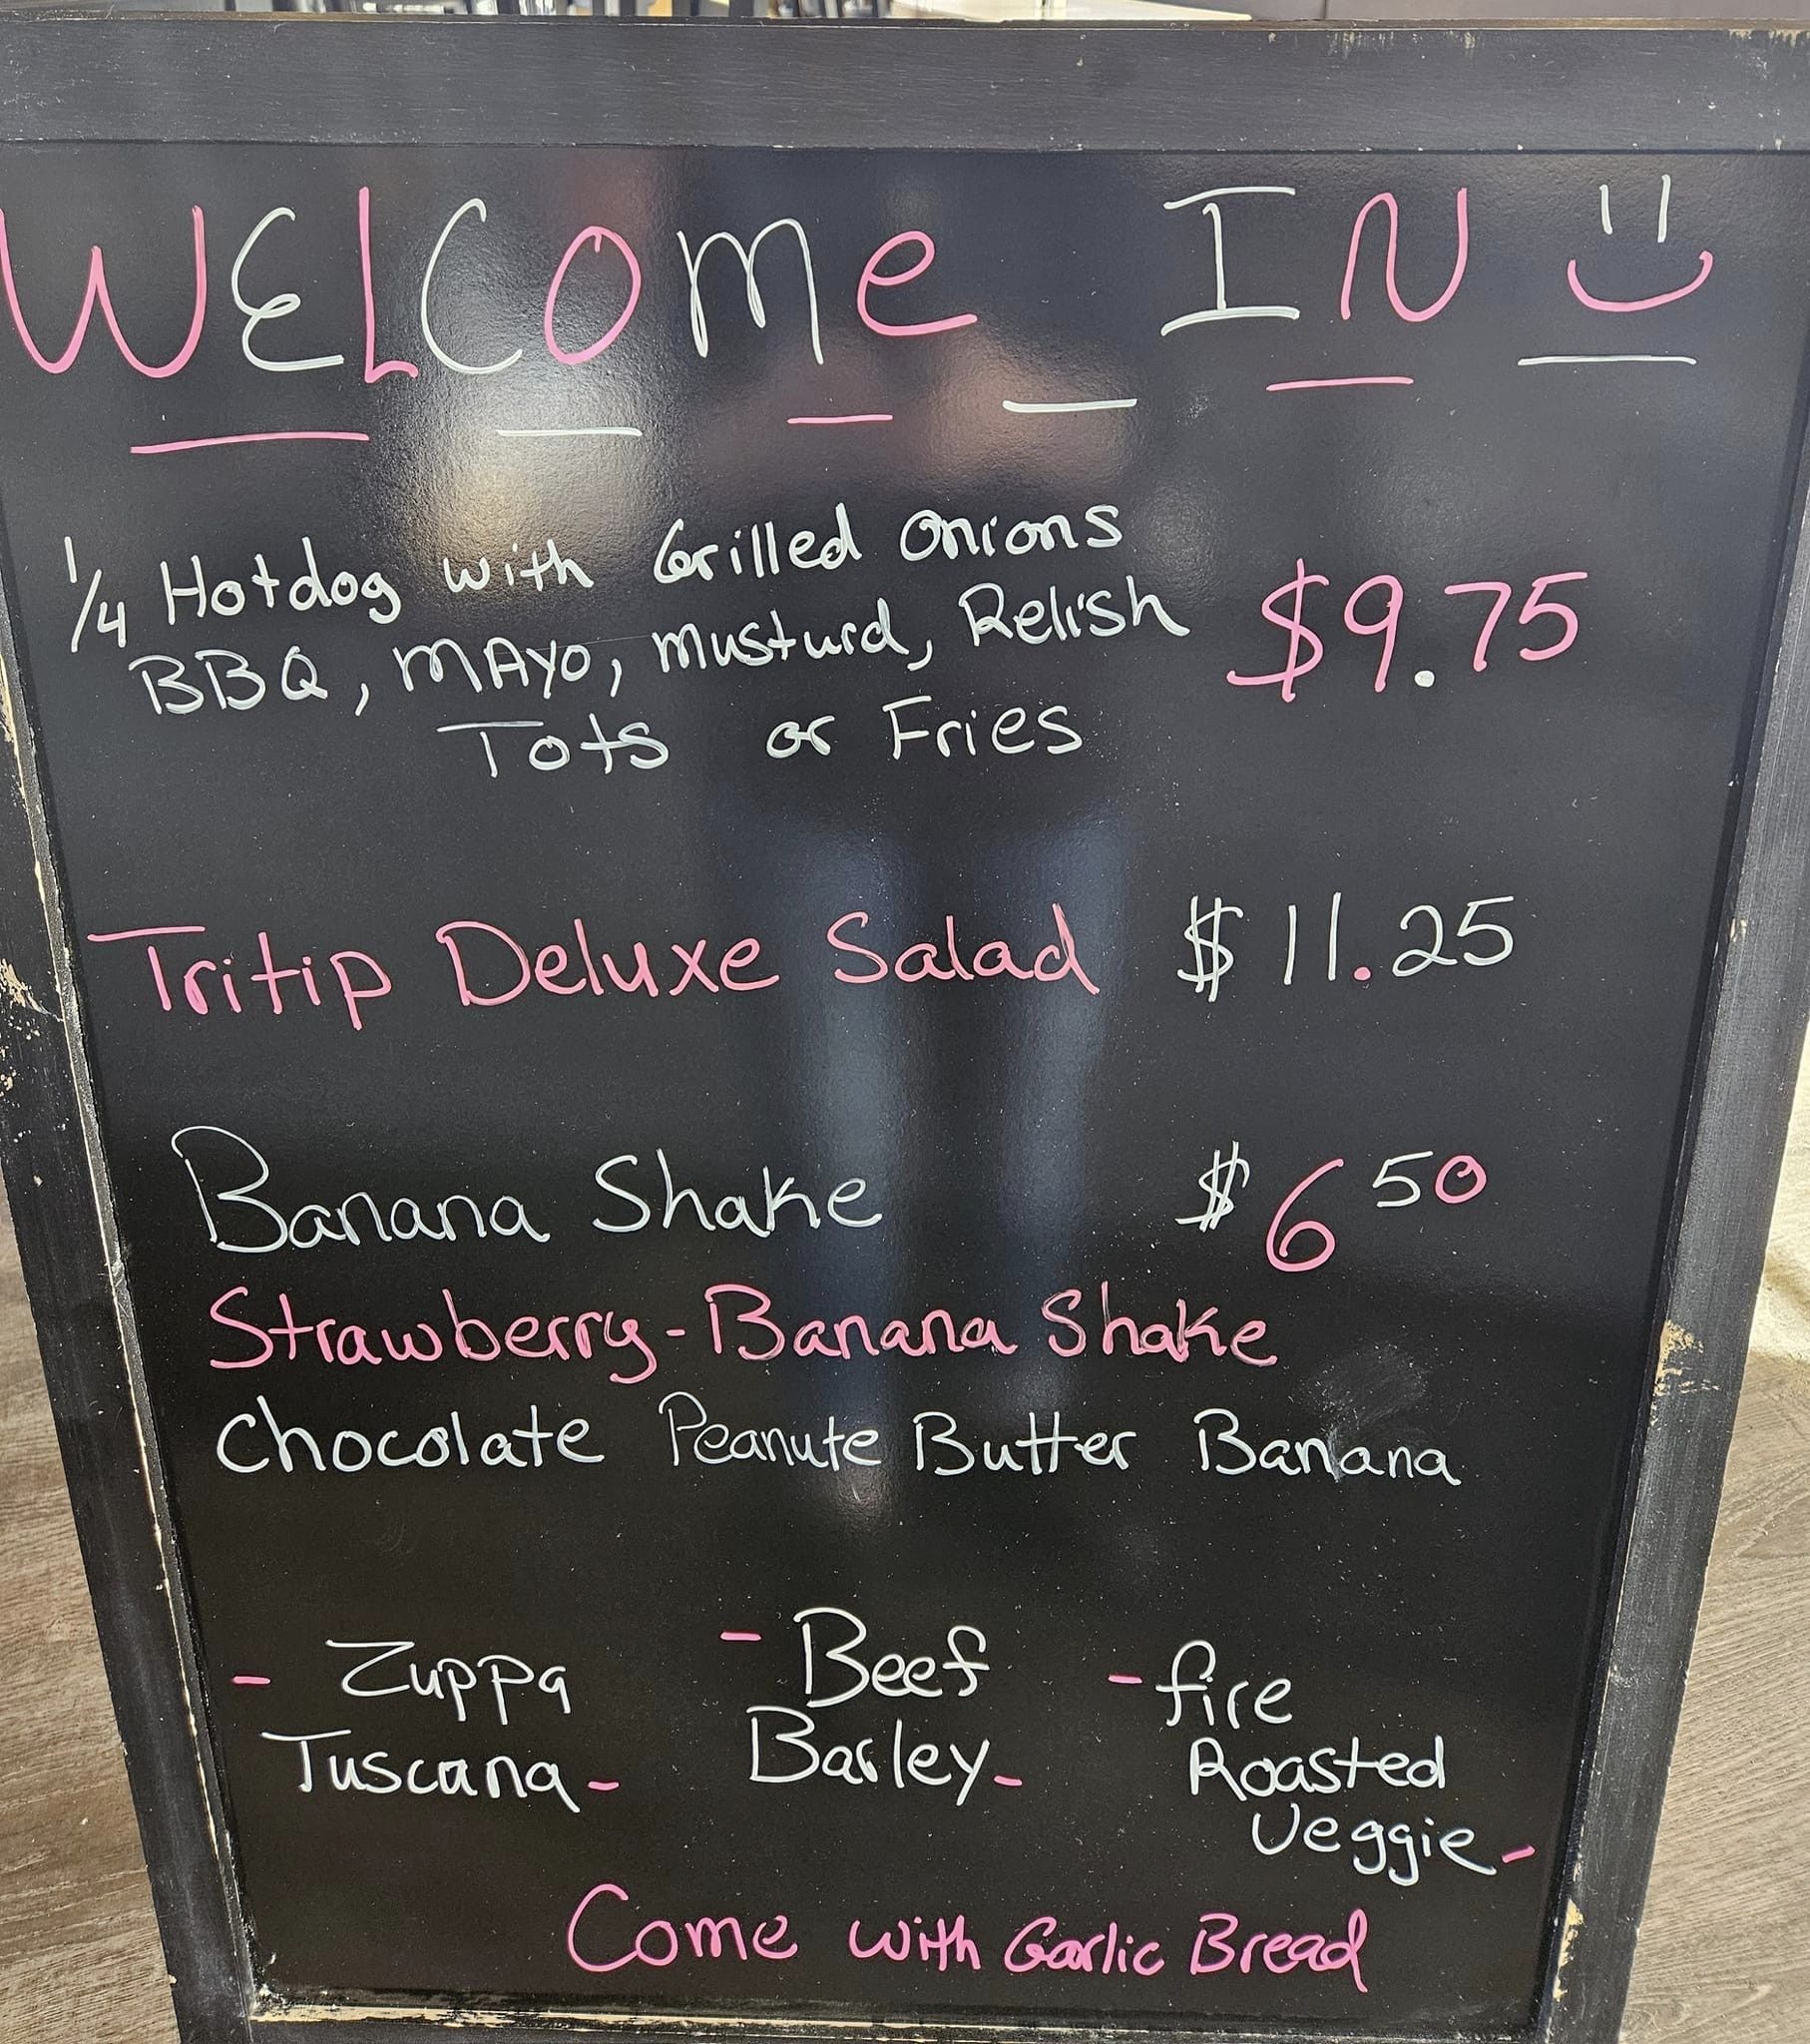 WELCOME IN
1/4 Hotdog with Grilled Onions
BBQ, MAYO, Musturd, Relish $9.75
Tots or Fries
Tritip Deluxe Salad $11.25
Banana Shake $6 50
Strawberry-Banana Shake
Chocolate Peanute Butter Banana
- Zuppa - Beef - fire
Tuscana - Barley - Roasted
Veggie -
Come with Garlic Bread